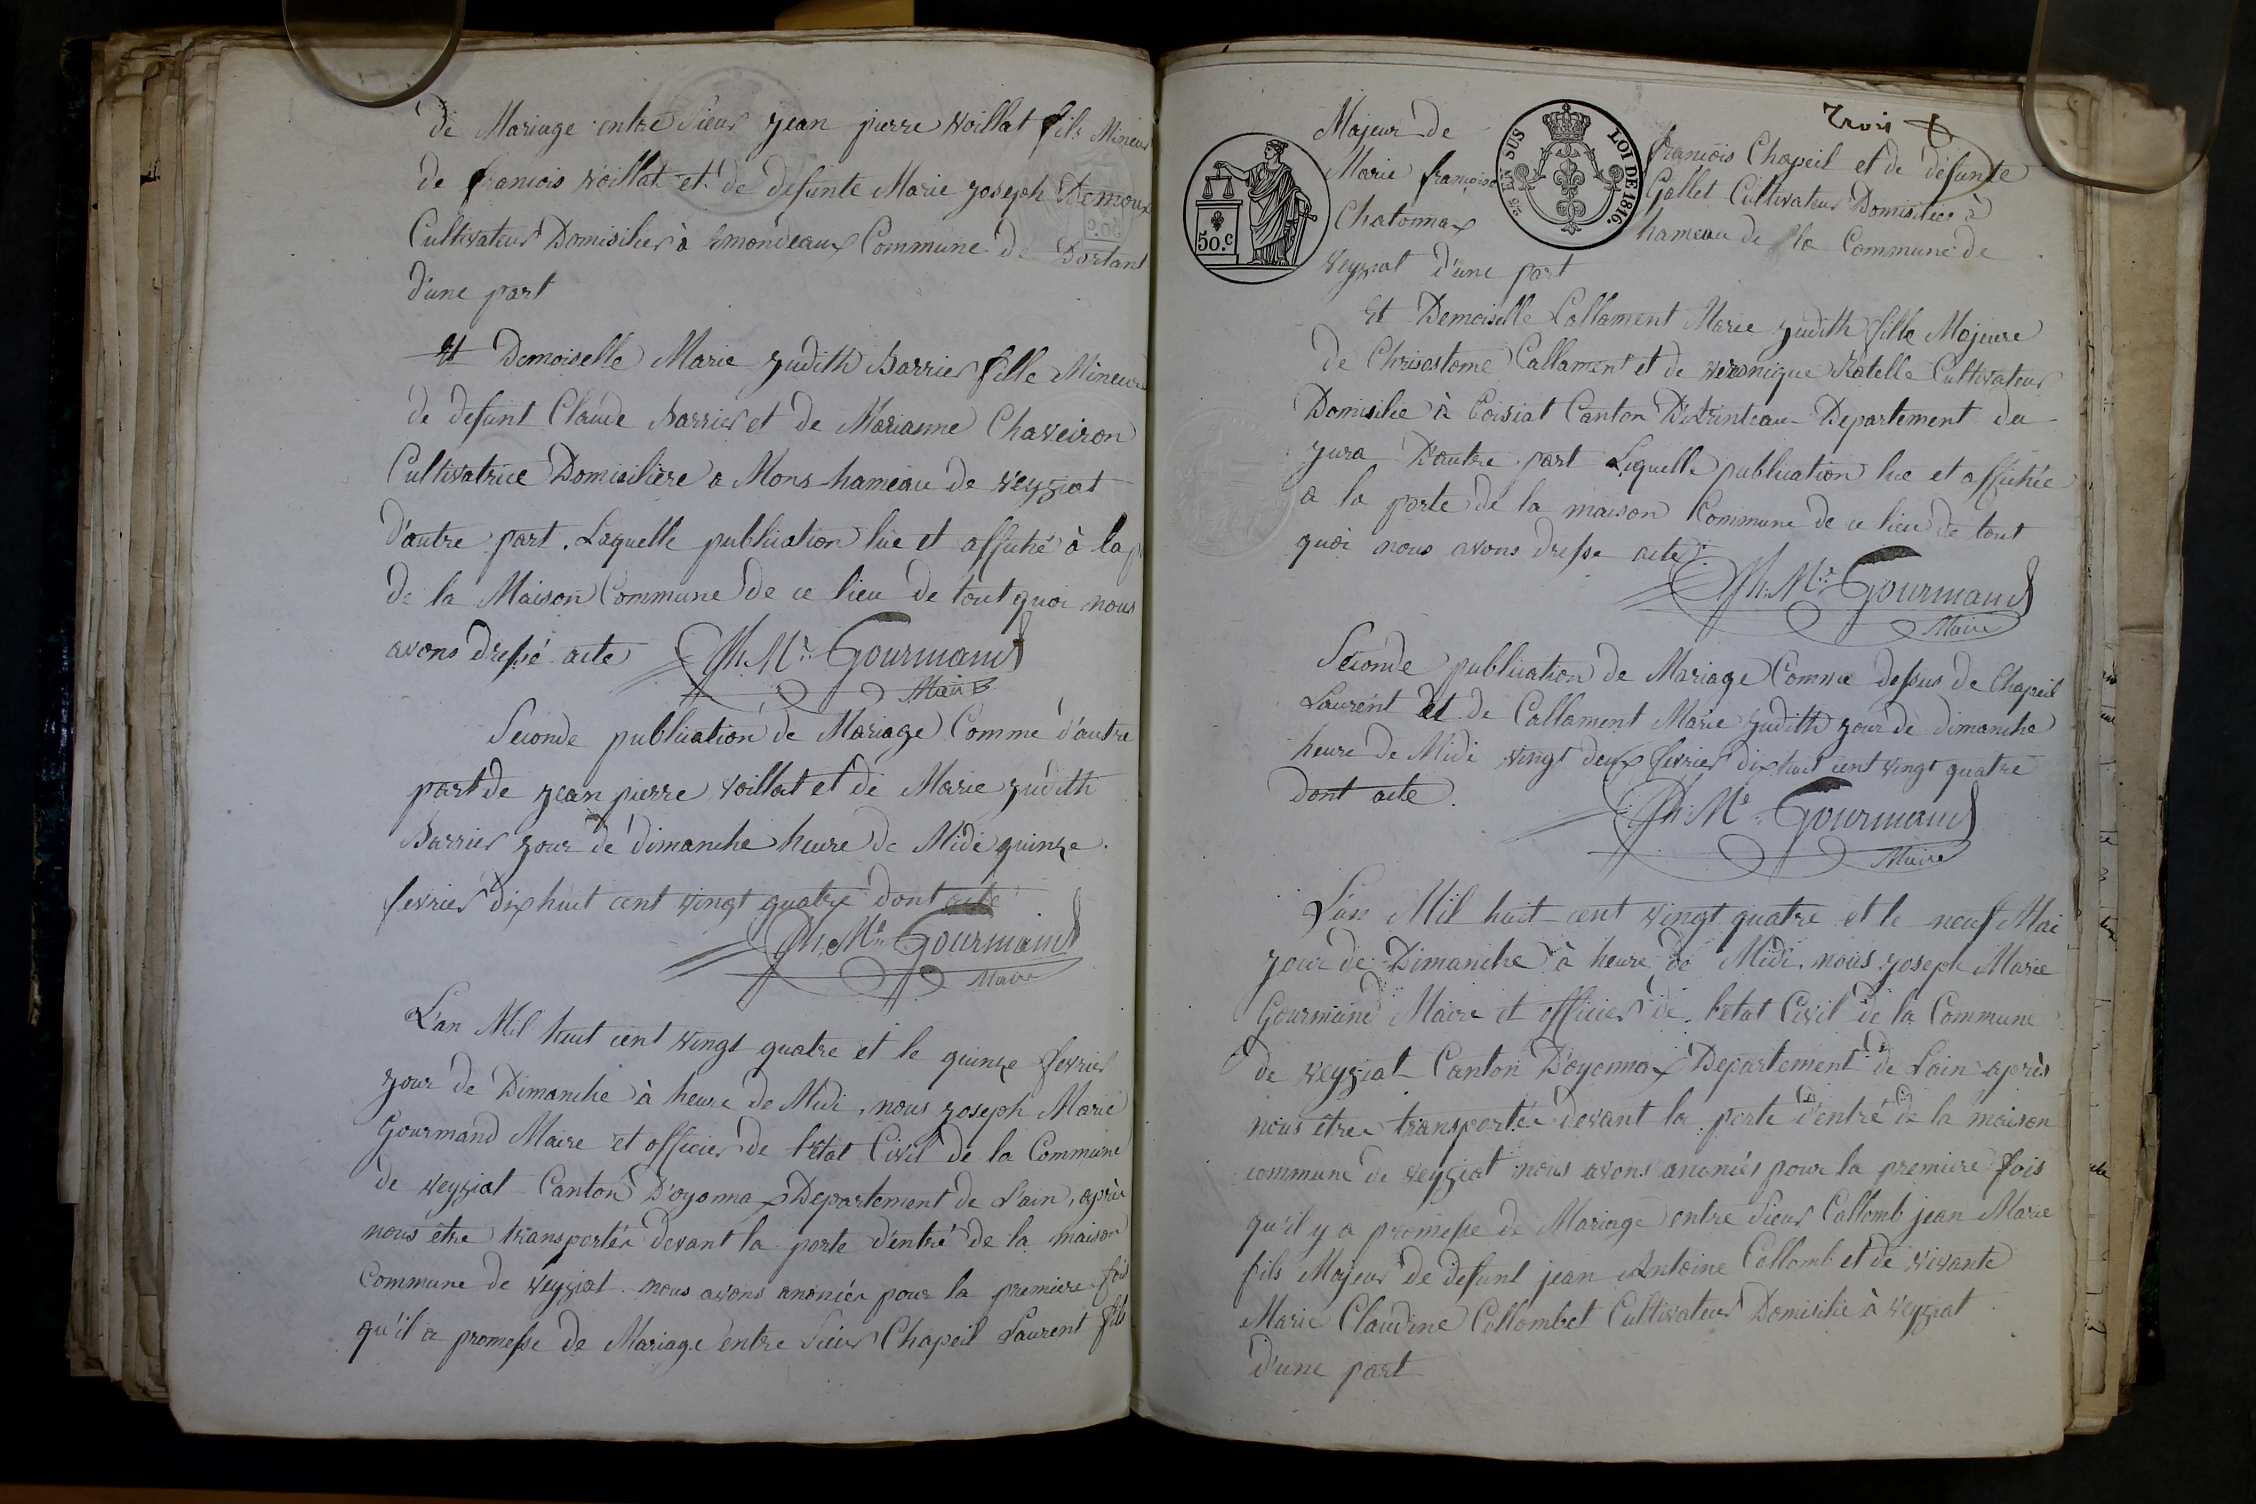 de Mariage entre Sieur jean pierre Voillat fils Mineur
de francois Voillat et de defunte Marie joseph Demoux
Cultivateur Domisilier à Emondeaux Commune de Dortant
d'une part
Et Demoiselle Marie judith Barrier fille Mineure
de defunt Claude Barrier et de Marianne Chaveiron
Cultivatrice Domicilière a Mons hameau de veyziat
d'autre part. Laquelle publication lue et affiché à la p
de la Maison Commune de ce lieu de tout quoi nous
avons dressé acte Jh. Mie Gourmand
Maire
Seconde publication de Mariage Comme d'autre
part de jean pierre Voillat et de Marie judith
Barrier jour de dimanche heure de Midi quinze
fevrier dix huit cent vingt quatre dont acte
Jh. Mie Gourmand
Maire
L'an Mil huit cent vingt quatre et le quinze fevrier
jour de Dimanche à heure de Midi, nous joseph Marie
Gourmand Maire et officier de l'etat Civil de la Commune
de veyziat Canton D'oyonnax Departement de l'ain, après
nous être transportés devant la porte d'entré de la maison
Commune de veyziat nous avons anoncés pour la premiere fois
qu'il a promesse de Mariage entre Sieur Chapeil Laurent fils
Trois
Majeur de francois Chapeil et de defunte
Marie francoise Gallet Cultivateur Domicilier à
Chatonnax hameau de la Commune de
veyziat d'une part
50.c
EN SUS
LOI DE 1816.
Et Demoiselle Callament Marie judith fille Majeure
de Chrisostome Callament et de veronique Ratelle Cultivateur
Domicilié à Coisiat Canton D'Arinteau Departement du
jura D'autre part Laquelle publication lue et affichée
a la porte de la maison Commune de ce lieu de tout
quoi nous avons dresse acte
Jh. Mie Gourmand
Maire
Seconde publication de Mariage Comme dessus de Chapeil
Laurent et de Callament Marie judith jour de dimanche
heure de Midi vingt deux fevrier dix huit cent vingt quatre
dont acte.
Jh. Mie Gourmand
Maire
L'an Mil huit cent vingt quatre et le neuf Mai
jour de Dimanche à heure de Midi, nous joseph Marie
Gourmand Maire et officier de l'etat Civil de la Commune
de veyziat Canton D'oyonnax Departement de l'ain après
nous être transportés devant la porte d'entré de la maison
commune de veyziat nous avons anoncés pour la premiere fois
qu'il y a promesse de Mariage entre Sieur Collomb jean Marie
fils Majeur de defunt jean Antoine Collomb et de vivante
Marie Claudine Collombet Cultivateur Domicilié à veyziat
d'une part